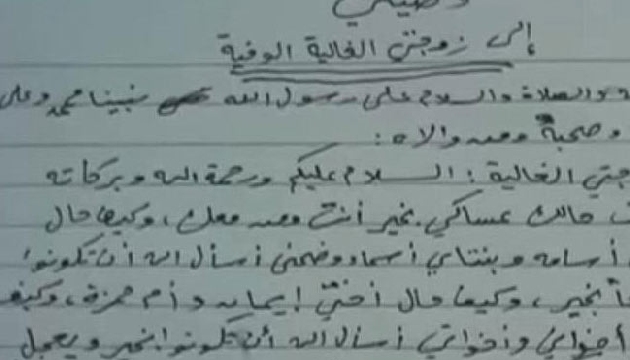 وصيتي
إلى زوجتي الغالية الوفية
والصلاة والسلام على رسول الله نبينا محمد وعلى
وصحبة ومن والاه :
جتي الغالية : السلام عليكم ورحمة الله وبركاته
حالك عساكي بخير أنت ومن معك ، وكيف حال
أسامه وبنتاي أسماء وضحى أسأل الله أن تكونوا
بخير ، وكيف حال أختي إيمان وأم حمزة ، وكيف
أخواني وأخواتي أسأل الله أن تكونوا بخير ويعجل